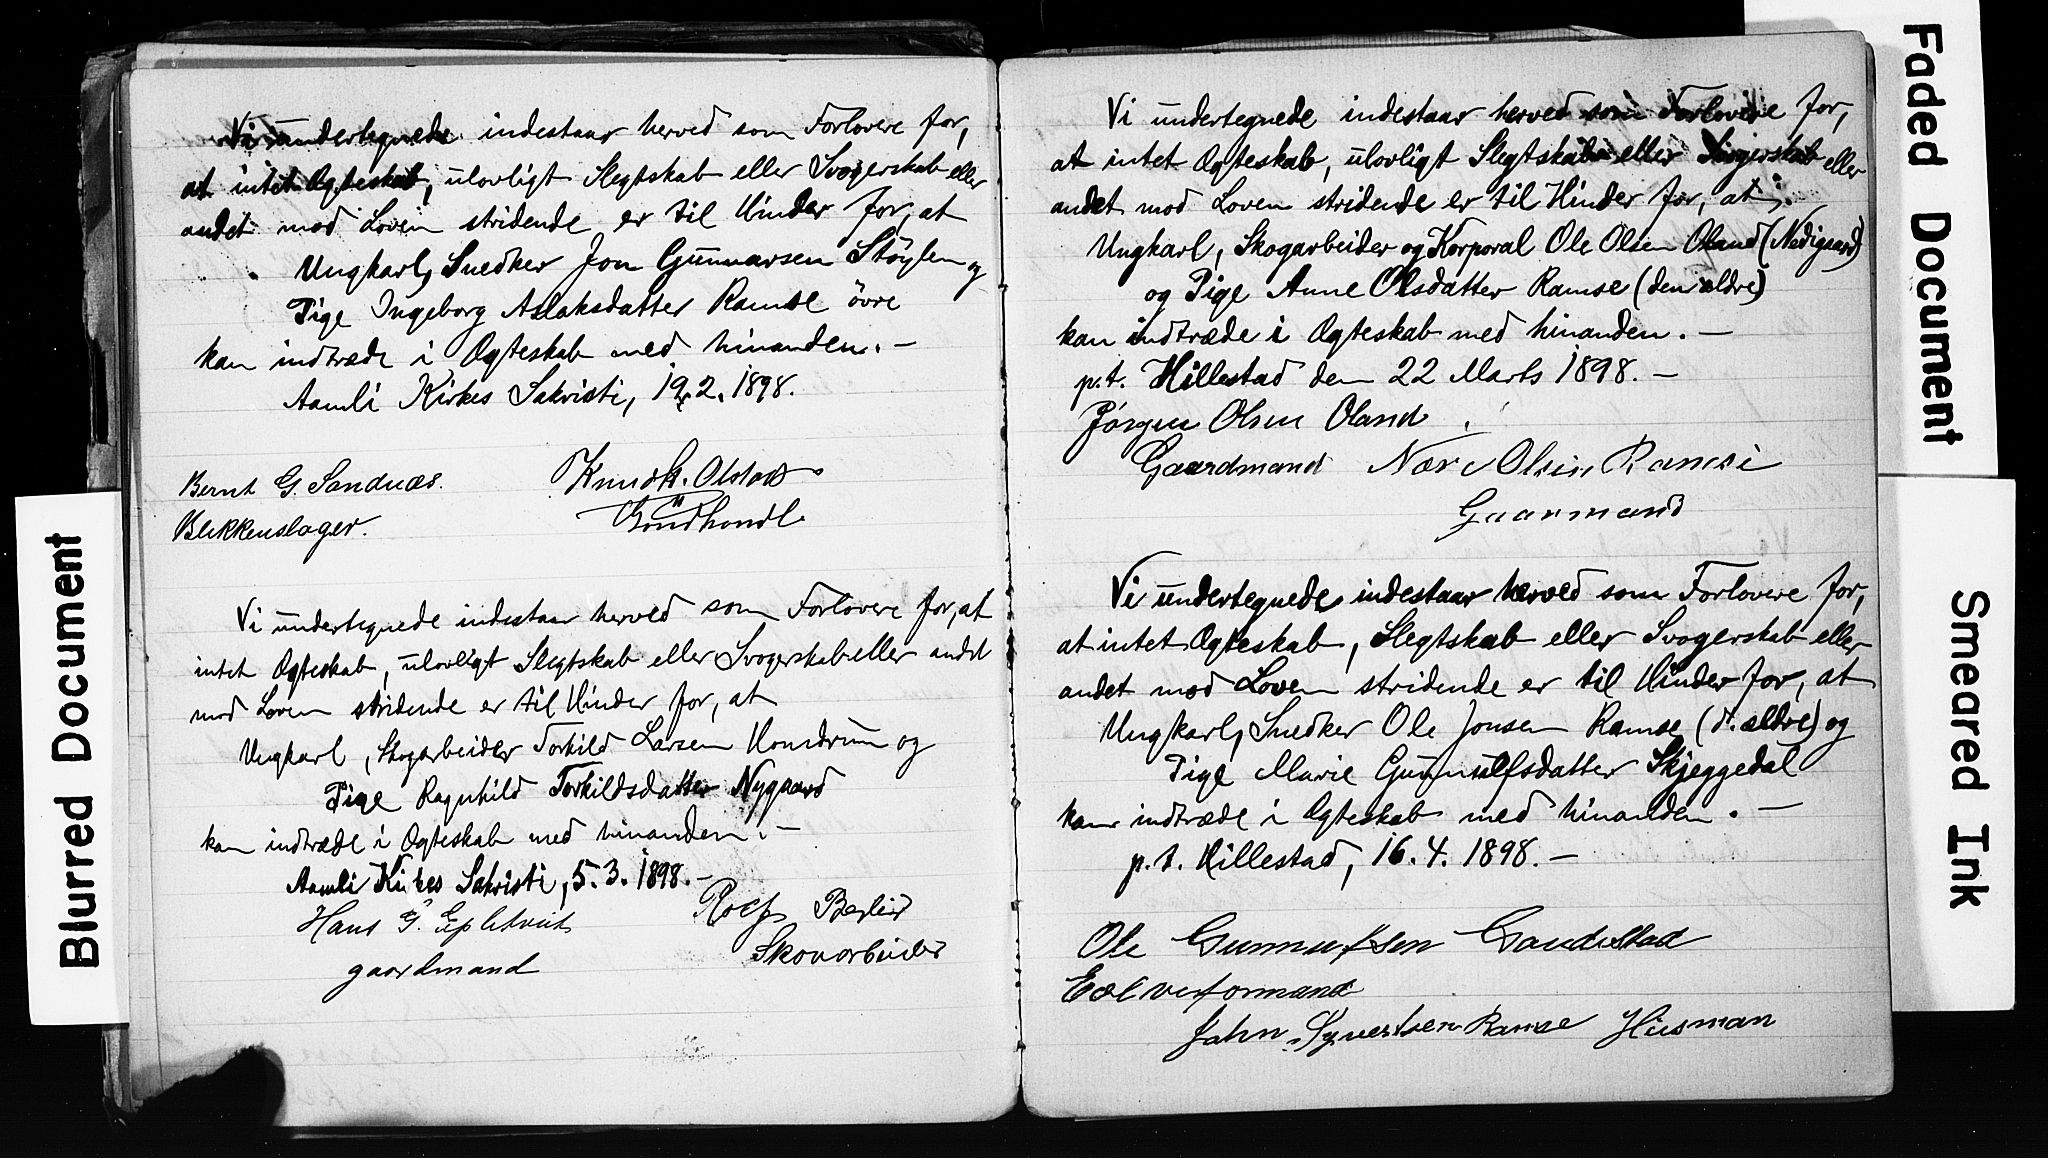 Vi undertegnede indestaar herved som Forlovere for,
at intet Ægteskab, ulovligt Slegtskab eller Svogerskab eller
andet mod Loven stridende er til Hinder for, at
Ungkarl, Snedker Jon Gunnarsen Støylen og
Pige Ingeborg Aslaksdatter Ramse övre
kan indtræde i Ægteskab med hinanden. —
Aamli Kirkes Sakristi, 19.2.1898.
Bernt G. Sandnæs.
Blikkenslager.
Knud K. Olstad
Vi undertegnede indestaar herved som Forlovere for, at
intet Ægteskab, ulovligt Slegtskab eller Svogerskab eller andet
mod Loven stridende er til Hinder for, at
Ungkarl, Skogarbeider Torkild Larsen Homdrum og
Pige Ragnhild Torkildsdatter Nygaard
kan indtræde i Ægteskab med hinanden. —
Aamli Kirkes Sakristi, 5.3.1898. —
Hans G. Epletveit
gaardmand
Rolf Berlid
Skovarbeider
Vi undertegnede indestaar herved som Forlovere for,
at intet Ægteskab, ulovligt Slegtskab eller Svogerskab eller
andet mod Loven stridende er til Hinder for, at
Ungkarl, Skogarbeider og Korporal Ole Olsen Oland (Nedigaard)
og Pige Anne Olsdatter Ramse (den ældre)
kan indtræde i Ægteskab med hinanden. —
p.t. Hillestad den 22 Marts 1898. —
Jørgen Olsen Oland
Gaardmand
Olsen Ramse
Gaarmand
Vi undertegnede indestaar herved som Forlovere for,
at intet Ægteskab, Slegtskab eller Svogerskab eller
andet mod Loven stridende er til Hinder for, at
Ungkarl, Snedker Ole Jonsen Ramse (d. ældre) og
Pige Marie Gunnulfsdatter Skjeggedal
kan indtræde i Ægteskab med hinanden. —
p.t. Hillestad, 16.4.1898. —
Ole Gunnufsen
John Syvertsen Ramse Husman
Blurred Document
Faded Document
Smeared Ink